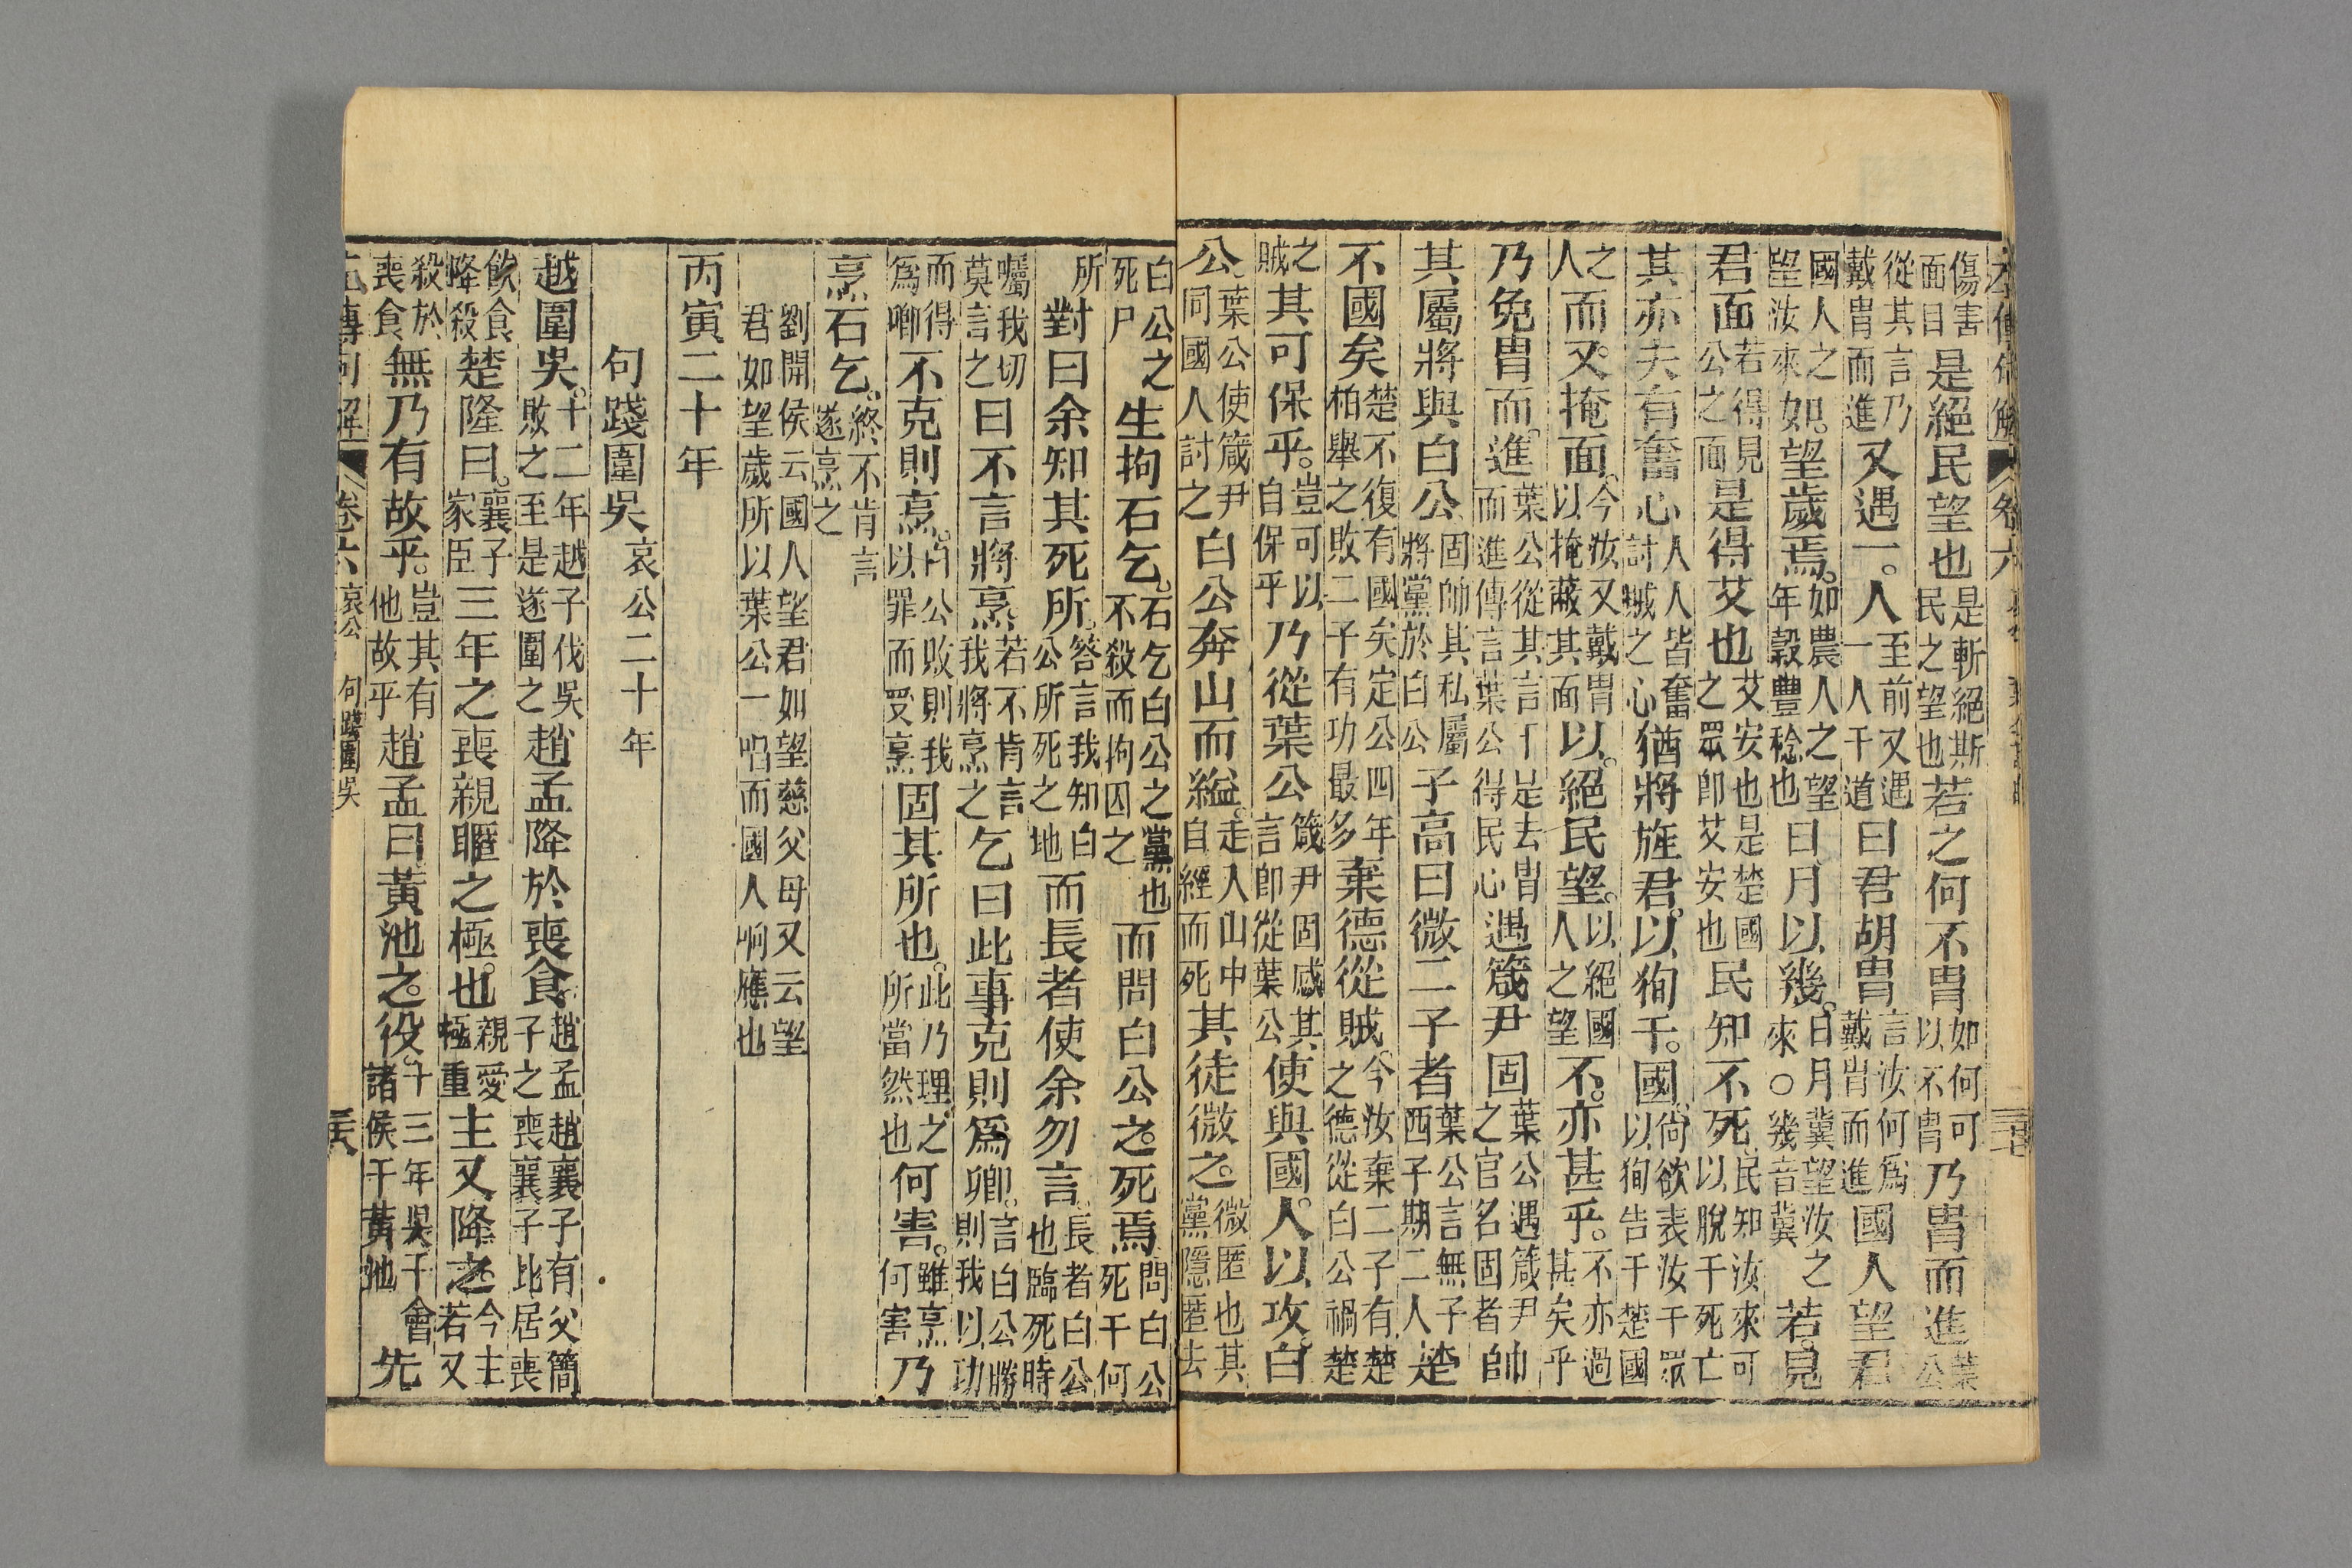 左傳句解 卷六
傷害面目是絕民望也是斬絕斯民之望也若之何不胄如何可以不胄乃胄而進葉公
從其言乃戴胄而進又遇一人至前又遇一人干道曰君胡胄言汝何爲戴胄而進國人望君
國人之望汝來如望歲焉如農人之望年穀豐稔也曰月以幾日月冀望汝之來○幾音冀若見
君面若得見公之面是得艾也艾安也是楚國之眾卽艾安也民知不死民知汝來可以脫干死亡
其亦夫有奮心人人皆奮討賊之心猶將旌君以狥干國尚欲表汝干眾以狥告干楚國
之人而又掩面今汝又戴胄以掩蔽其面以絕民望以絕國人之望不亦甚乎不亦過甚矣乎
乃免胄而進葉公從其言于是去胄而進傳言葉公得民心遇箴尹固葉公遇箴尹之官名固者帥
其屬將與白公固帥其私屬將黨於白公子高曰微二子者葉公言無子西子期二人楚
不國矣楚不復有國矣定公四年柏舉之敗二子有功最多棄德從賊今汝棄二子有楚之德從白公禍楚
之賊其可保乎豈可以自保乎乃從葉公箴尹固感其言卽從葉公使與國人以攻白
公葉公使箴尹同國人討之白公奔山而縊走入山中自經而死其徒微之微匿也其黨隱匿去
白公之死尸生拘石乞石乞白公之黨也不殺而拘囚之而問白公之死焉問白公死干何
所對曰余知其死所答言我知白公所死之地而長者使余勿言長者白公也臨死時
囑我切莫言之曰不言將烹若不肯言我將烹之乞曰此事克則爲卿言白公勝則我以功
而得爲卿不克則烹白公敗則我以罪而受烹固其所也此乃理之所當然也何害雖烹何害乃
烹石乞終不肯言遂烹之
劉開侯云國人望君如望慈父母又云望君如望歲所以葉公一唱而國人响應也
丙寅二十年
句踐圍吳哀公二十年
越圍吳十二年越子伐吳敗之至是遂圍之趙孟降於喪食趙孟趙襄子有父簡子之喪襄子比居喪
飲食降殺楚隆曰襄子家臣三年之喪親暱之極也親愛極重主又降之今主若又
殺於喪食無乃有故乎豈其有他故乎趙孟曰黃池之役十三年吳干會諸侯干黃池先
左傳句解 卷六 哀公 句踐圍吳